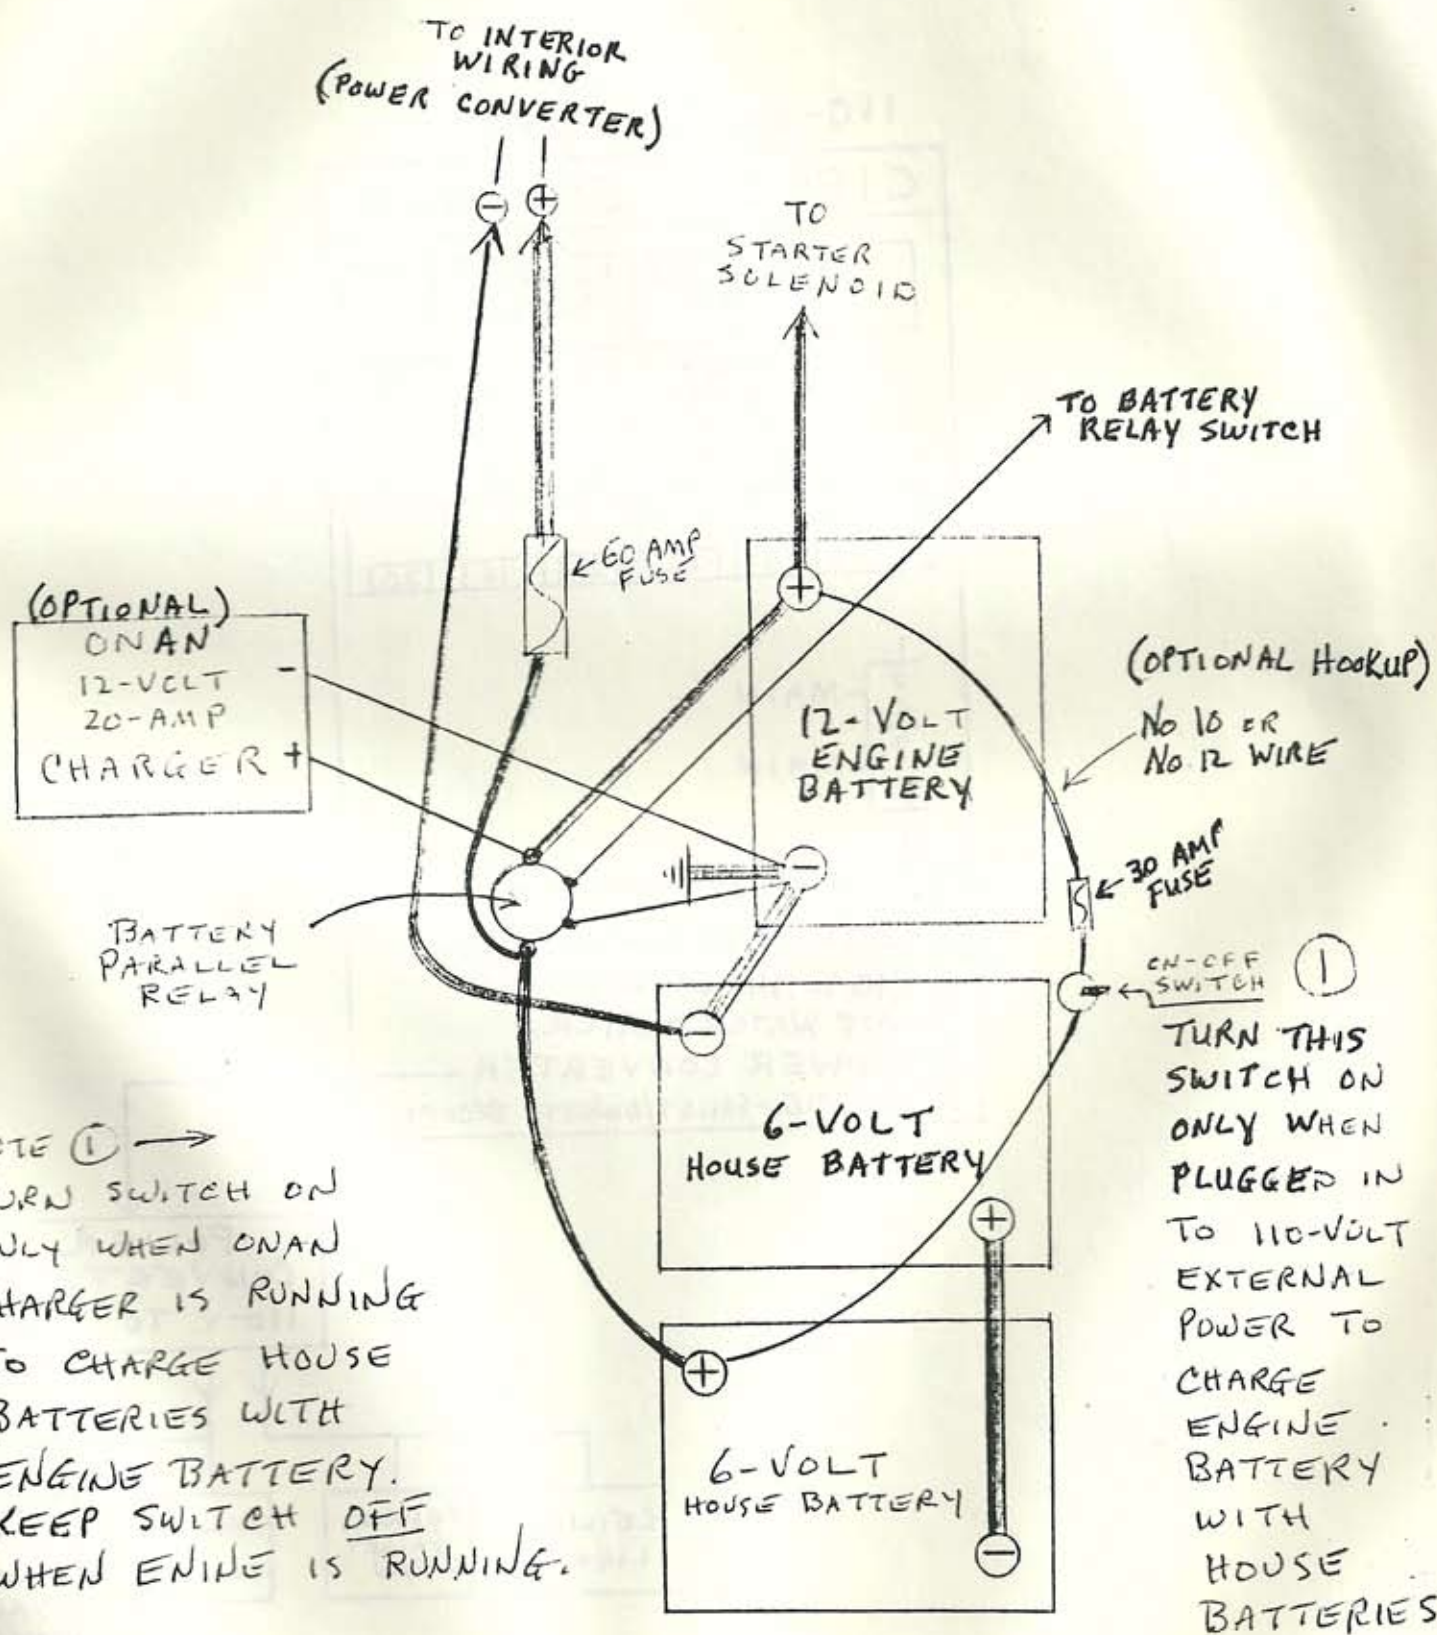 TO INTERIOR
WIRING
(POWER CONVERTER)
- +
TO
STARTER
SOLENOID
TO BATTERY
RELAY SWITCH
60 AMP
FUSE
(OPTIONAL)
ONAN
12-VOLT -
20-AMP
CHARGER +
+
12-VOLT
ENGINE
BATTERY
-
(OPTIONAL HOOKUP)
NO 10 OR
NO. 12 WIRE
30 AMP
FUSE
BATTERY
PARALLEL
RELAY
ON-OFF
SWITCH
1
TURN THIS
SWITCH ON
ONLY WHEN
PLUGGED IN
TO 110-VOLT
EXTERNAL
POWER TO
CHARGE
ENGINE
BATTERY
WITH
HOUSE
BATTERIES
-
6-VOLT
HOUSE BATTERY
+
+
6-VOLT
HOUSE BATTERY
-
OTE 1
URN SWITCH ON
NLY WHEN ONAN
HARGER IS RUNNING
TO CHARGE HOUSE
BATTERIES WITH
ENGINE BATTERY.
KEEP SWITCH OFF
WHEN ENINE IS RUNNING.